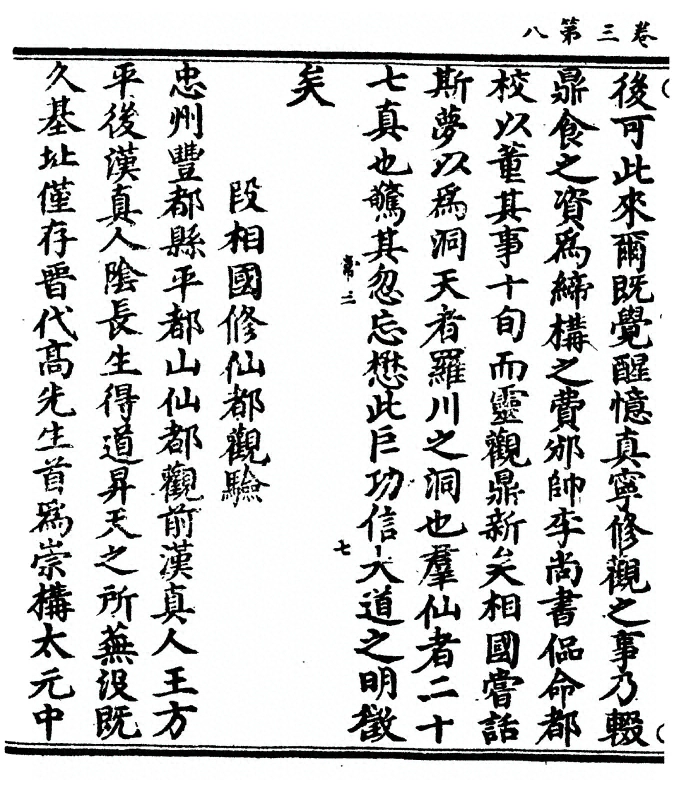 卷三第八
後可此來爾既覺醒憶真寧修觀之事乃輟
鼎食之資爲締構之費邠帥李尚書侃命都
校以董其事十旬而靈觀鼎新矣相國嘗話
斯夢以爲洞天者羅川之洞也羣仙者二十
七真也驚其忽忘懋此巨功信大道之明徵
常三
七
矣
段相國修仙都觀驗
忠州豐都縣平都山仙都觀前漢真人王方
平後漢真人陰長生得道昇天之所蕪沒既
久基址僅存晋代高先生首爲崇構太元中